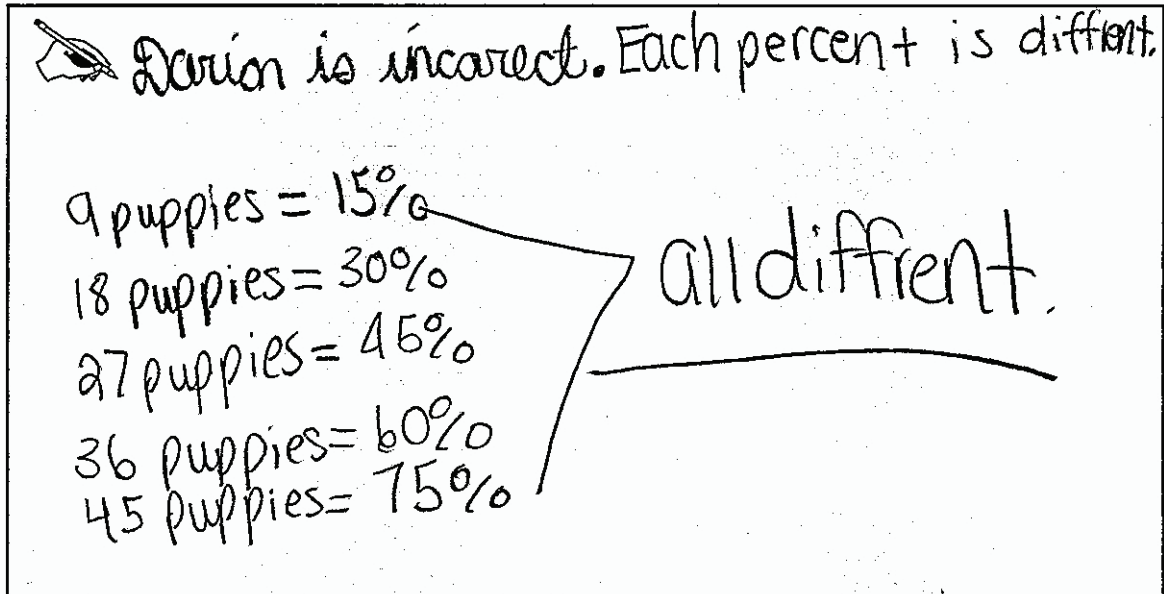 Darion is incarect. Each percent is diffrent.
9 puppies = 15%
18 puppies = 30%
27 puppies = 45%
36 puppies = 60%
45 puppies = 75%
all diffrent.